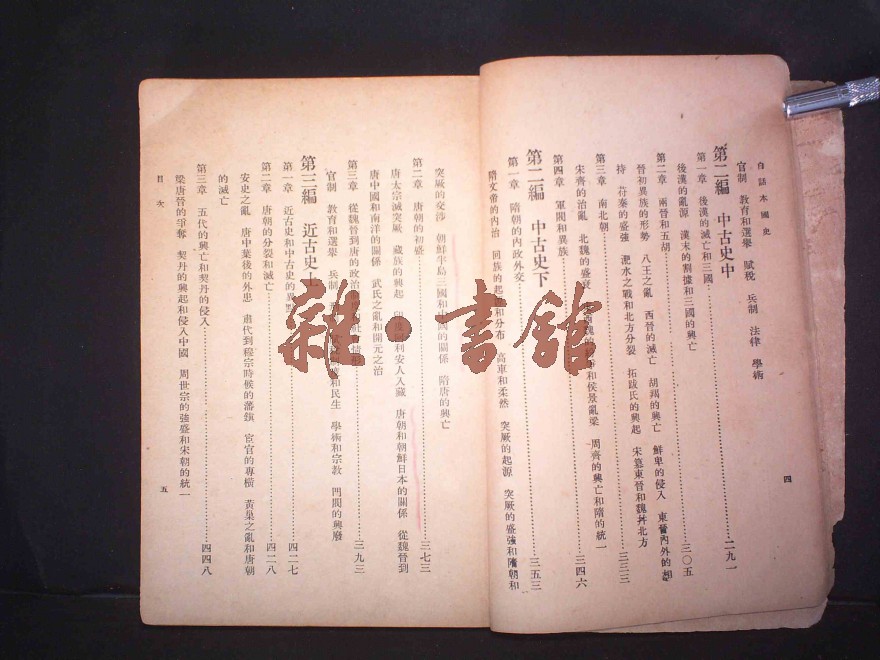 白話本國史
官制 教育和選舉 賦稅 兵制 法律 學術
第二編 中古史中
第一章 後漢的滅亡和三國……二九一
後漢的亂源 漢末的割據和三國的興亡
第二章 兩晉和五胡……三〇五
晉初異族的形勢 八王之亂 西晉的滅亡 胡羯的興亡 鮮卑的侵入 東晉內外的相
持 苻秦的盛強 淝水之戰和北方分裂 拓跋氏的興起 宋篡東晉和魏幷北方
第三章 南北朝……三三三
宋齊的治亂 北魏的盛衰 和侯景亂梁 周齊的興亡和隋的統一
第四章 軍閥和異族……三四六
第二編 中古史下
第一章 隋朝的內政外交……三五三
隋文帝的內治 回族的起源和分布 高車和柔然 突厥的起源 突厥的盛強和隋朝和
四
突厥的交涉 朝鮮半島三國和中國的關係 隋唐的興亡
第二章 唐朝的初盛……三七三
唐太宗滅突厥 藏族的興起 印度阿利安人入藏 唐朝和朝鮮日本的關係 從魏晉到
唐中國和南洋的關係 武氏之亂和開元之治
第三章 從魏晉到唐的政治制度和社會情形……三九三
官制 教育和選舉 兵制 和民生 學術和宗教 門閥的興廢
第三編 近古史上
第一章 近古史和中古史的異點……四二七
第二章 唐朝的分裂和滅亡……四二八
安史之亂 唐中葉後的外患 肅代到穆宗時候的藩鎮 宦官的專橫 黃巢之亂和唐朝
的滅亡
第三章 五代的興亡和契丹的侵入……四四八
梁唐晉的爭奪 契丹的興起和侵入中國 周世宗的強盛和宋朝的統一
目次
五
雜·書館